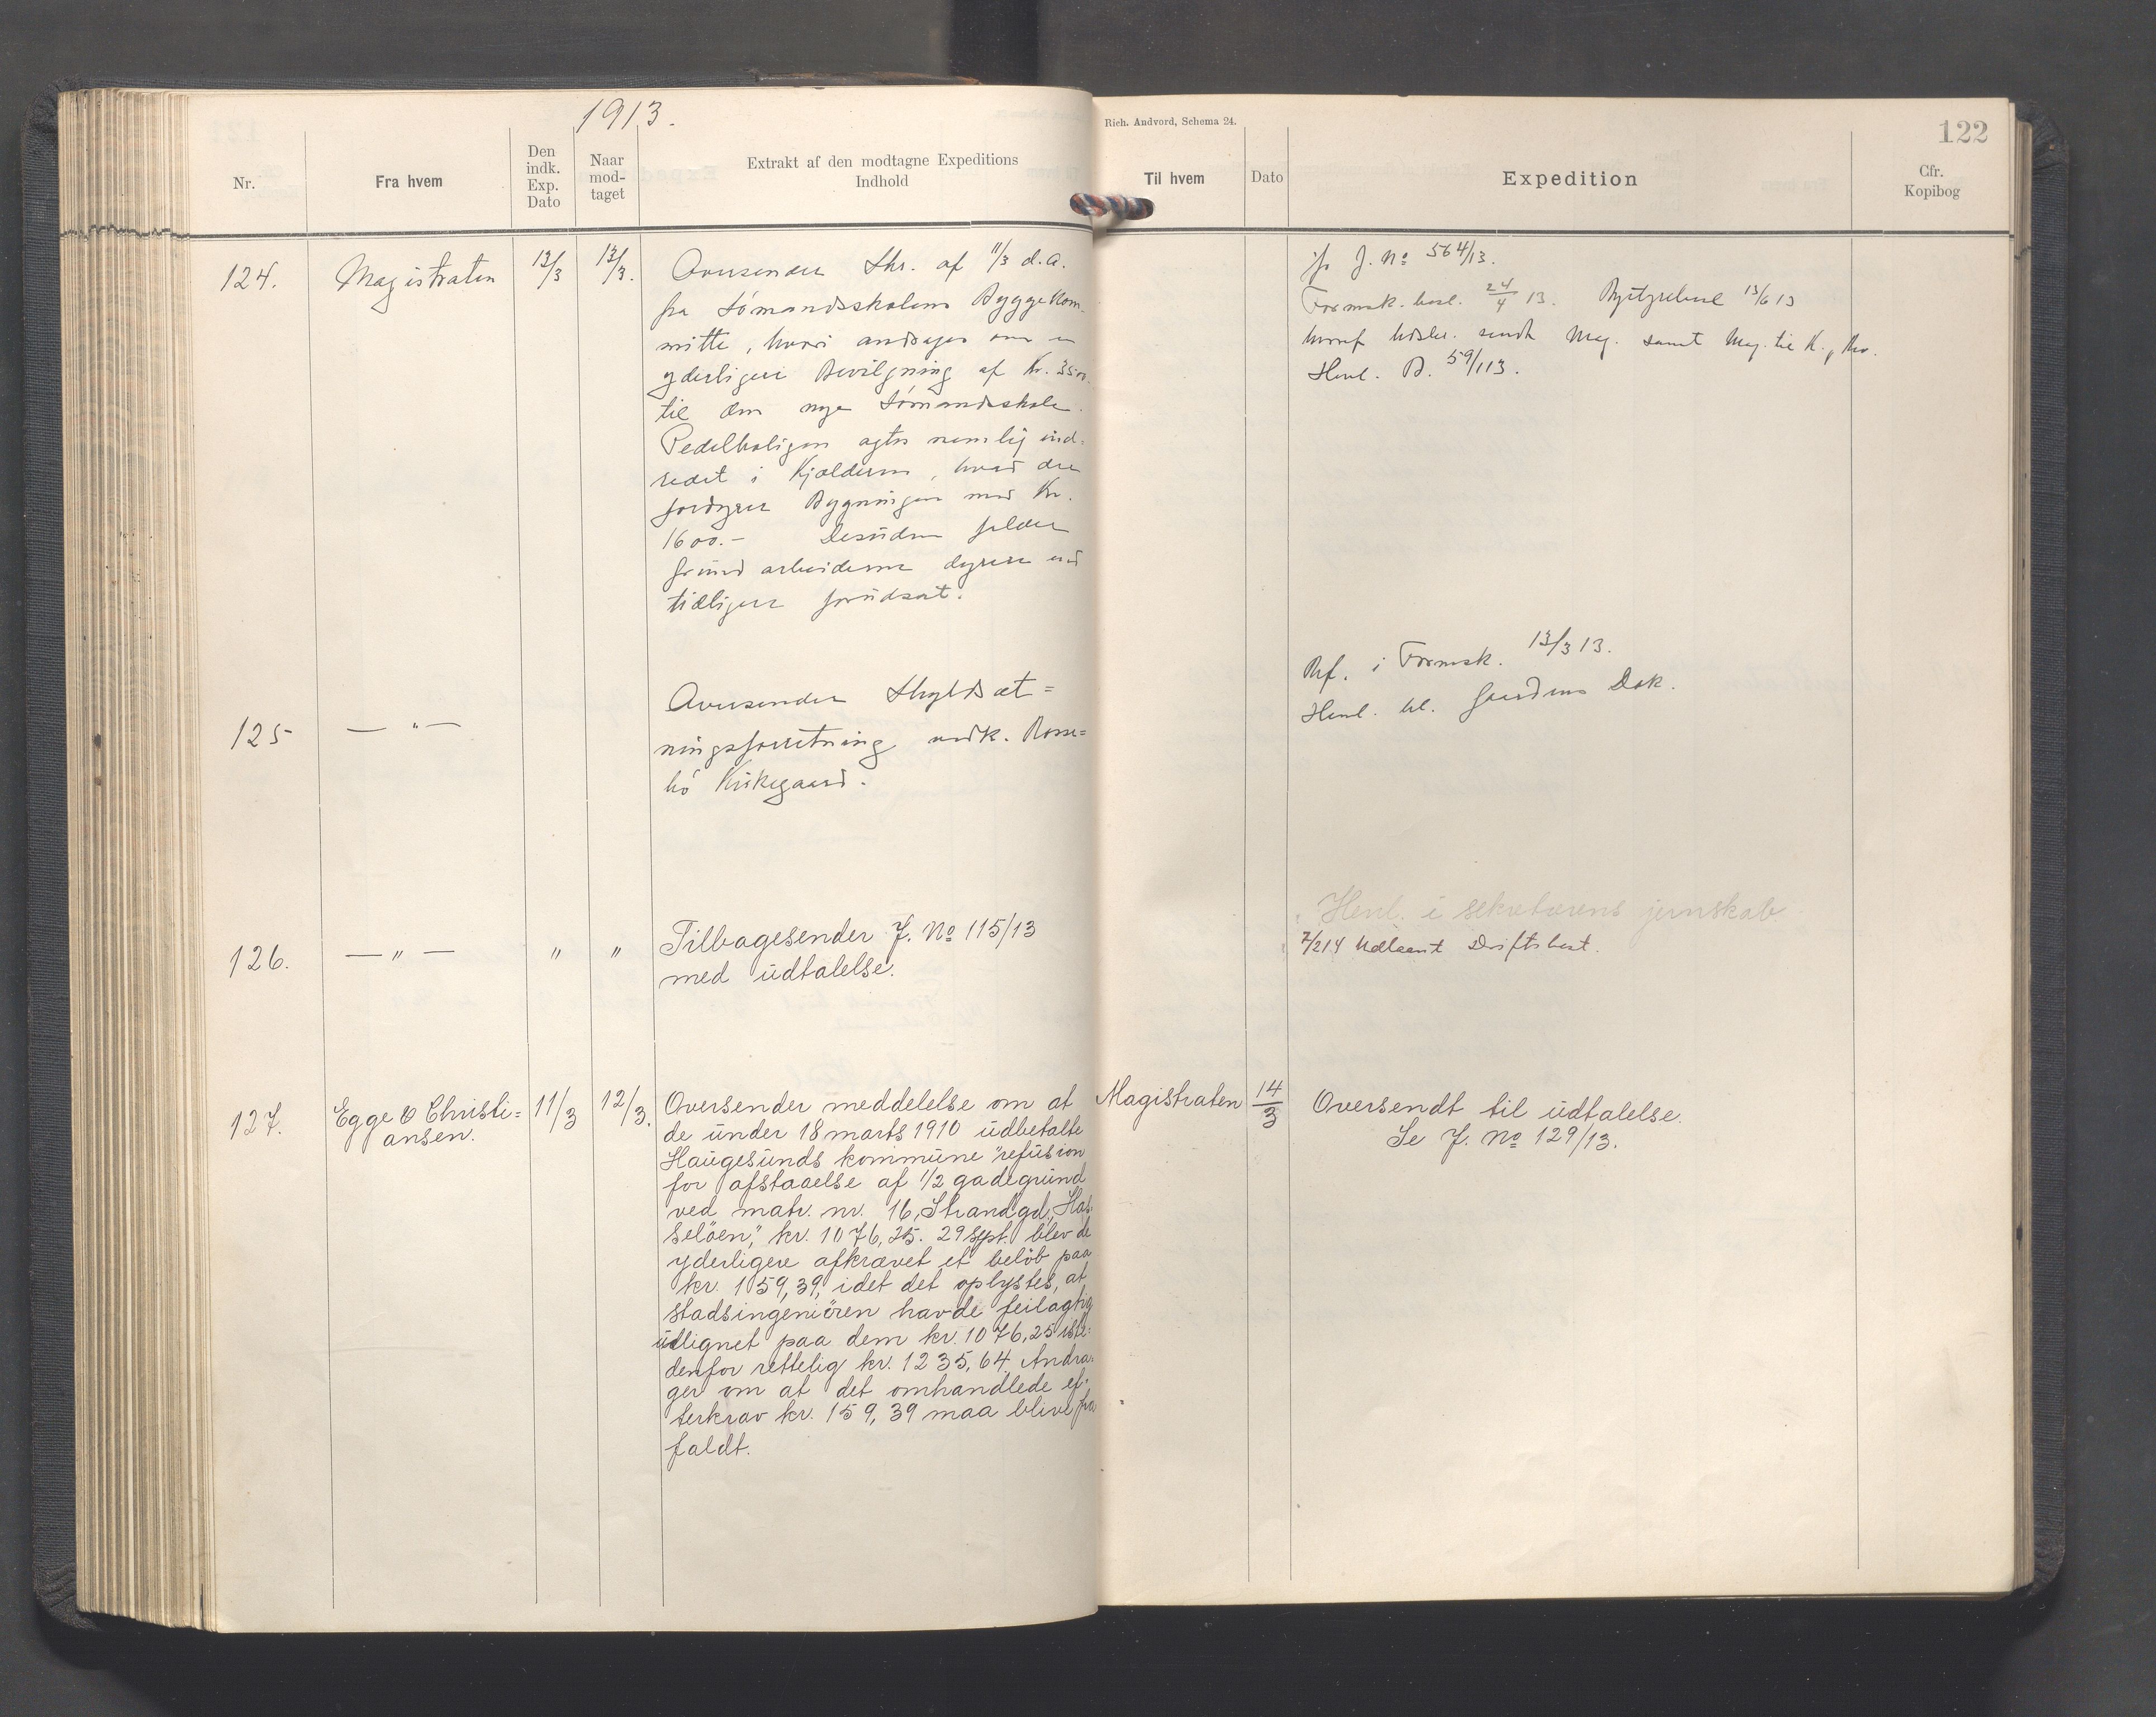 1913.
Rich. Andvord, Schema 24.
122
Nr.
Fra hvem
Den
indk.
Exp.
Dato
Naar
mod-
taget
Extrakt af den modtagne Expeditions
Indhold
Til hvem
Dato
Expedition
Cfr.
Kopibog
124.
Magistraten
13/3
13/3.
Oversender Skr. af 11/3 d.a.
fra Sömandsskolens Byggekom-
mitte, hvori andrages om en
yderligere Bevilgning af Kr. 3500
til den nye Sömandsskole.
Pedelboligen agtes nemlig ind-
redet i Kjælderen, hvad der
fordyrer Bygningen med Kr.
1600.- Desuden falder
Grundarbeiderne dyrere end
tidligere forudsat.
J. No 564/13.
Formsk. besl. 24/4 13. 13/6 13
sendt Mag. samt Mag. til K.
Henl. B. 59/113.
125
— " —
Oversender Skyldsæt=
ningsforretning vedk. Rosse=
bö Kirkegaard.
Ref. i Formsk. 13/3 13.
Henl. bl. Gaardens Dok.
126.
— " —
"
"
Tilbagesender J. No 115/13
med udtalelse.
Henl. i sekretærens jernskab
7/214 Udlaant Driftsbest.
127.
Egge & Christi=
ansen.
11/3
12/3.
Oversender meddelelse om at
de under 18 marts 1910 udbetalte
Haugesunds kommune "refusion
for afstaaelse af 1/2 gadegrund
ved matr. nr. 16, Strandgd., Has-
selöen," kr. 1076,25. 29 sept. blev de
yderligere afkrævet et belöb paa
kr. 159,39, idet det oplystes, at
stadsingeniören havde feilagtig
udlignet paa dem kr. 1076,25 iste-
denfor rettelig kr. 1235,64. Andra-
ger om at det omhandlede ef-
terkrav kr. 159,39 maa blive fra
faldt.
Magistraten
14/3
Oversendt til udtalelse.
Se J. No 129/13.